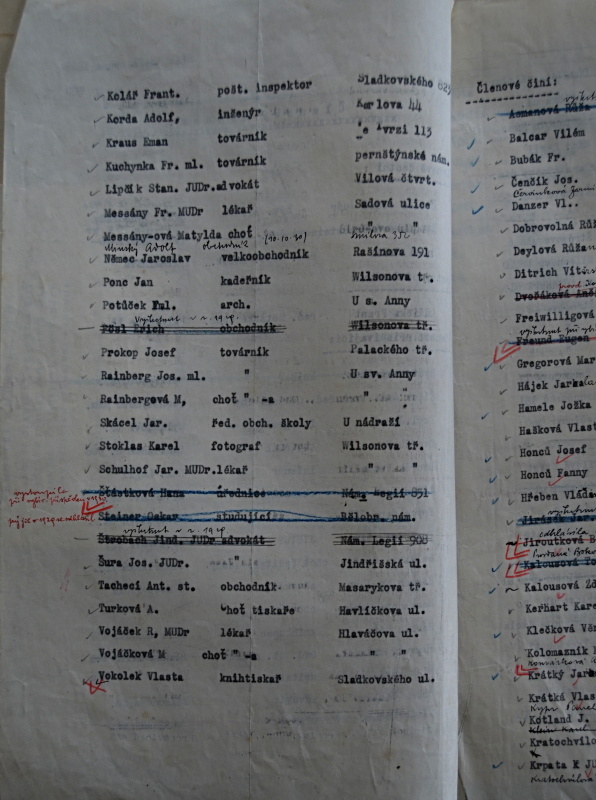 Kolář Frant. pošt. inspektor Sladkovského
Korda Adolf, inženýr Karlova 44
Kraus Eman továrník Ve tvrzi 113
Kuchynka Fr. ml. továrník pernštýnské nám.
Lipčík Stan. JUDr. advokát Vilová čtvrt.
Messány Fr. MUDr lékař Sadová ulice
Messány-ová Matylda choť " "
Adolf obchodník (10.10.30) Smilova
Němec Jaroslav velkoobchodník Rašínova 191
Ponc Jan kadeřník Wilsonova tř.
Potůček Eml. arch. U s. Anny
vyškrtnut v r. 1929.
Pösl Erich obchodník Wilsonova tř.
Prokop Josef továrník Palackého tř.
Rainberg Jos. ml. " U sv. Anny
Rainbergová M, choť " -a " "
Skácel Jar. řed. obch. školy U nádraží
Stoklas Karel fotograf Wilsonova tř.
Schulhof Jar. MUDr. lékař " "
Šťástková Hana úřednice Nám. Legií 891
Steiner Oskar studující Bělobr. nám.
vyškrtnut v r. 1929
Štrobach Jind. JUDr advokát Nám. Legií 908
Šura Jos. JUDr. " Jindřišská ul.
Tachecí Ant. st. obchodník. Masarykova tř.
Turková A. choť tiskaře Havlíčkova ul.
Vojáček R, MUDr lékař Hlaváčova ul.
Vojáčková M choť " -a " "
Vokolek Vlasta knihtiskař Sladkovského ul.
Členové činí:
Asmanová Růža
Balcar Vilém
Bubák Fr.
Čenčík Jos.
Danzer Vl..
Dobrovolná
Deylová Růža
Ditrich
Dvořáková
Freiwilligová
Freund Eugen
Gregorová Mar
Hájek Jarka
Hamele Joška
Hašková Vlast
Honců Josef
Honců Fanny
Hřeben Vláďa
Jirásek Jar.
odhlásila
Jiroutková B
Kalousová
Kalousová Zd
Kerhart Kare
Klečková Vě
Kolomazník
Krátký Jar
Krátká Vlas
Kotland J.
Kratochvílo
Krpata K JU
Kratochvílová